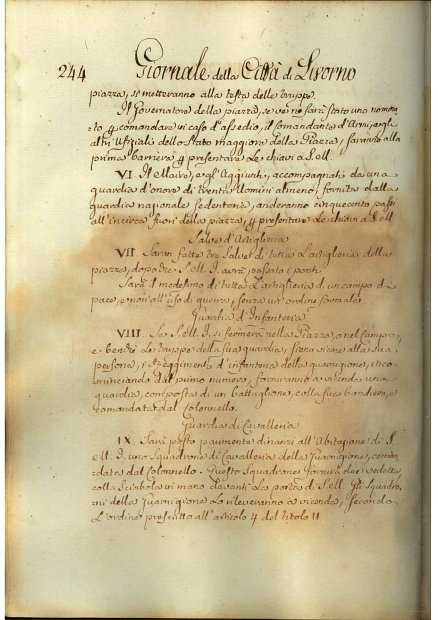 244 Giornale della Città di Livorno
piazza, si metteranno alla testa delle truppe.
Il Governatore della piazza, se ve ne sarà stato uno nomina
to p comandare in caso d'assedio, il comandante d'Armi, e gli
altri Ufiziali dello Stato maggiore della Piazza, saranno alla
prima barriera p presentare le chiavi a S. M.
VI. Il Maire, e gl'Aggiunti, accompagnati da una
guardia d'onore di trenta Uomini almeno, fornita dalla
guardia nazionale sedentaria, anderanno cinquecento passi
all'incirca fuori della piazza, p presentare le chiavi a S. M.
Salve d'Artiglieria
VII Saran fatte tre Salve di tutta l'artiglieria della
piazza, dopo che S. M. I. avrà passato i ponti.
Sarà il medesimo di tutta l'artiglieria d'un campo di
pace, e non all'uso di guerra, senza un'ordine formale.
Guardia d'Infanteria
VIII. Se S. M. I. si fermerà nella Piazza, o nel Campo,
e benchè le truppe della sua guardia, sieno vicine alla sua
persona, i Reggimenti d'infanteria della guarnigione, inco
minciando dal primo numero, forniranno a vicenda una
guardia, composta di un battaglione, colla sua bandiera, e
comandata dal Colonnello.
Guardia di Cavalleria
IX. Sarà posto parimente dinanzi all'Abitazione di S.
M. I. uno Squadrone di Cavalleria della Guarnigione, coman
data dal Colonnello. Questo Squadrone fornirà due vedette
colla Sciabola in mano davanti la porta di S. M. Gli Squadro
ni della Guarnigione lo rileveranno a vicenda, secondo
l'ordine prescritto all'articolo 4 del titolo II